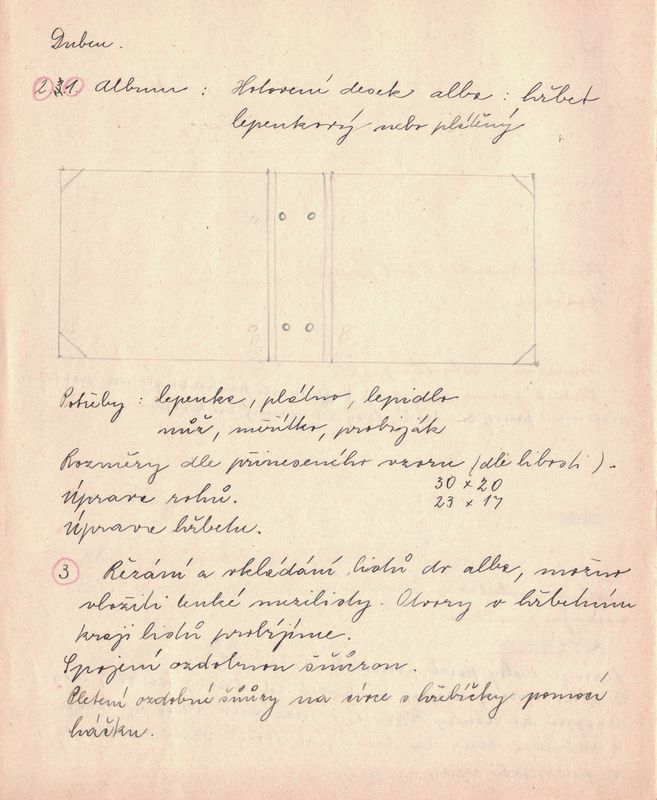 Duben.
2 1 Album : Hotovení desek alba : hřbet
lepenkový nebo plátěný
Potřeby : lepenka, plátno, lepidlo
nůž, měřítko, probiják
Rozměry dle přineseného vzoru (dle libosti).
30 x 20
Úprava rohů.
23 x 17
Úprava hřbetu.
3 Řezání a vkládání listů do alba, možno
vložiti tenké mezilisty. Otvory v hřbetním
kraji listů probíjíme.
Spojení ozdobnou šňůrou.
Pletení ozdobné šňůry na cívce s hřebíčky pomocí
háčku.